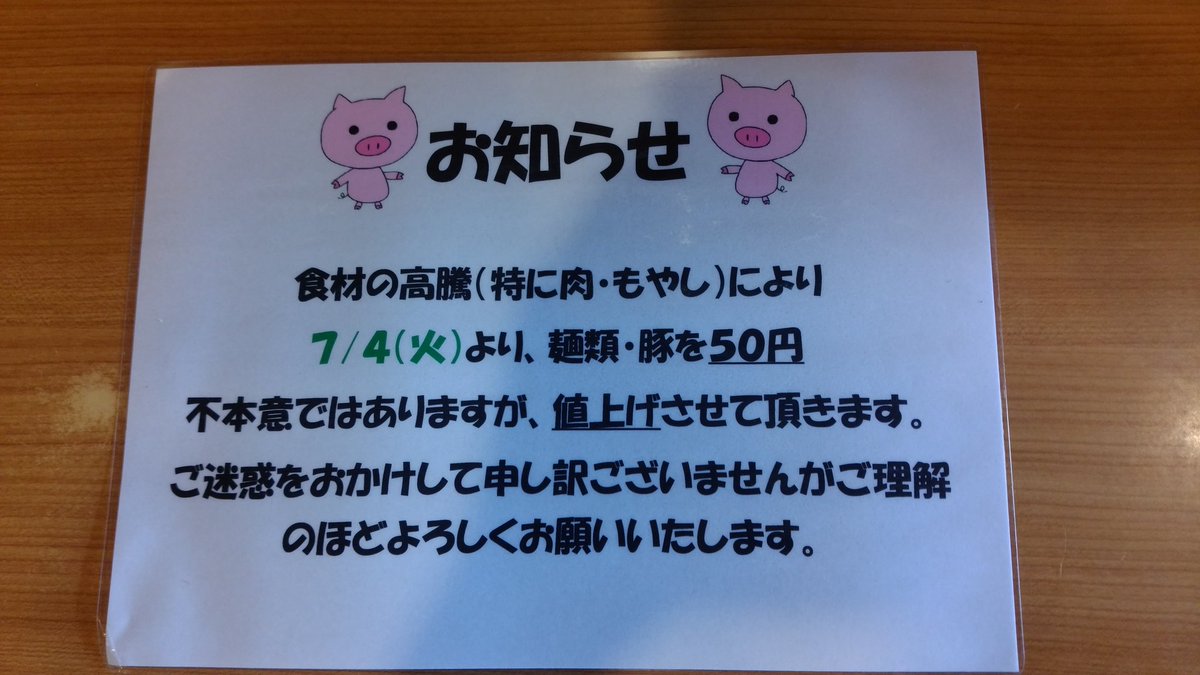 お知らせ
食材の高騰(特に肉・もやし)により
7/4(火)より、麺類・豚を50円
不本意ではありますが、値上げさせて頂きます。
ご迷惑をおかけして申し訳ございませんがご理解
のほどよろしくお願いいたします。